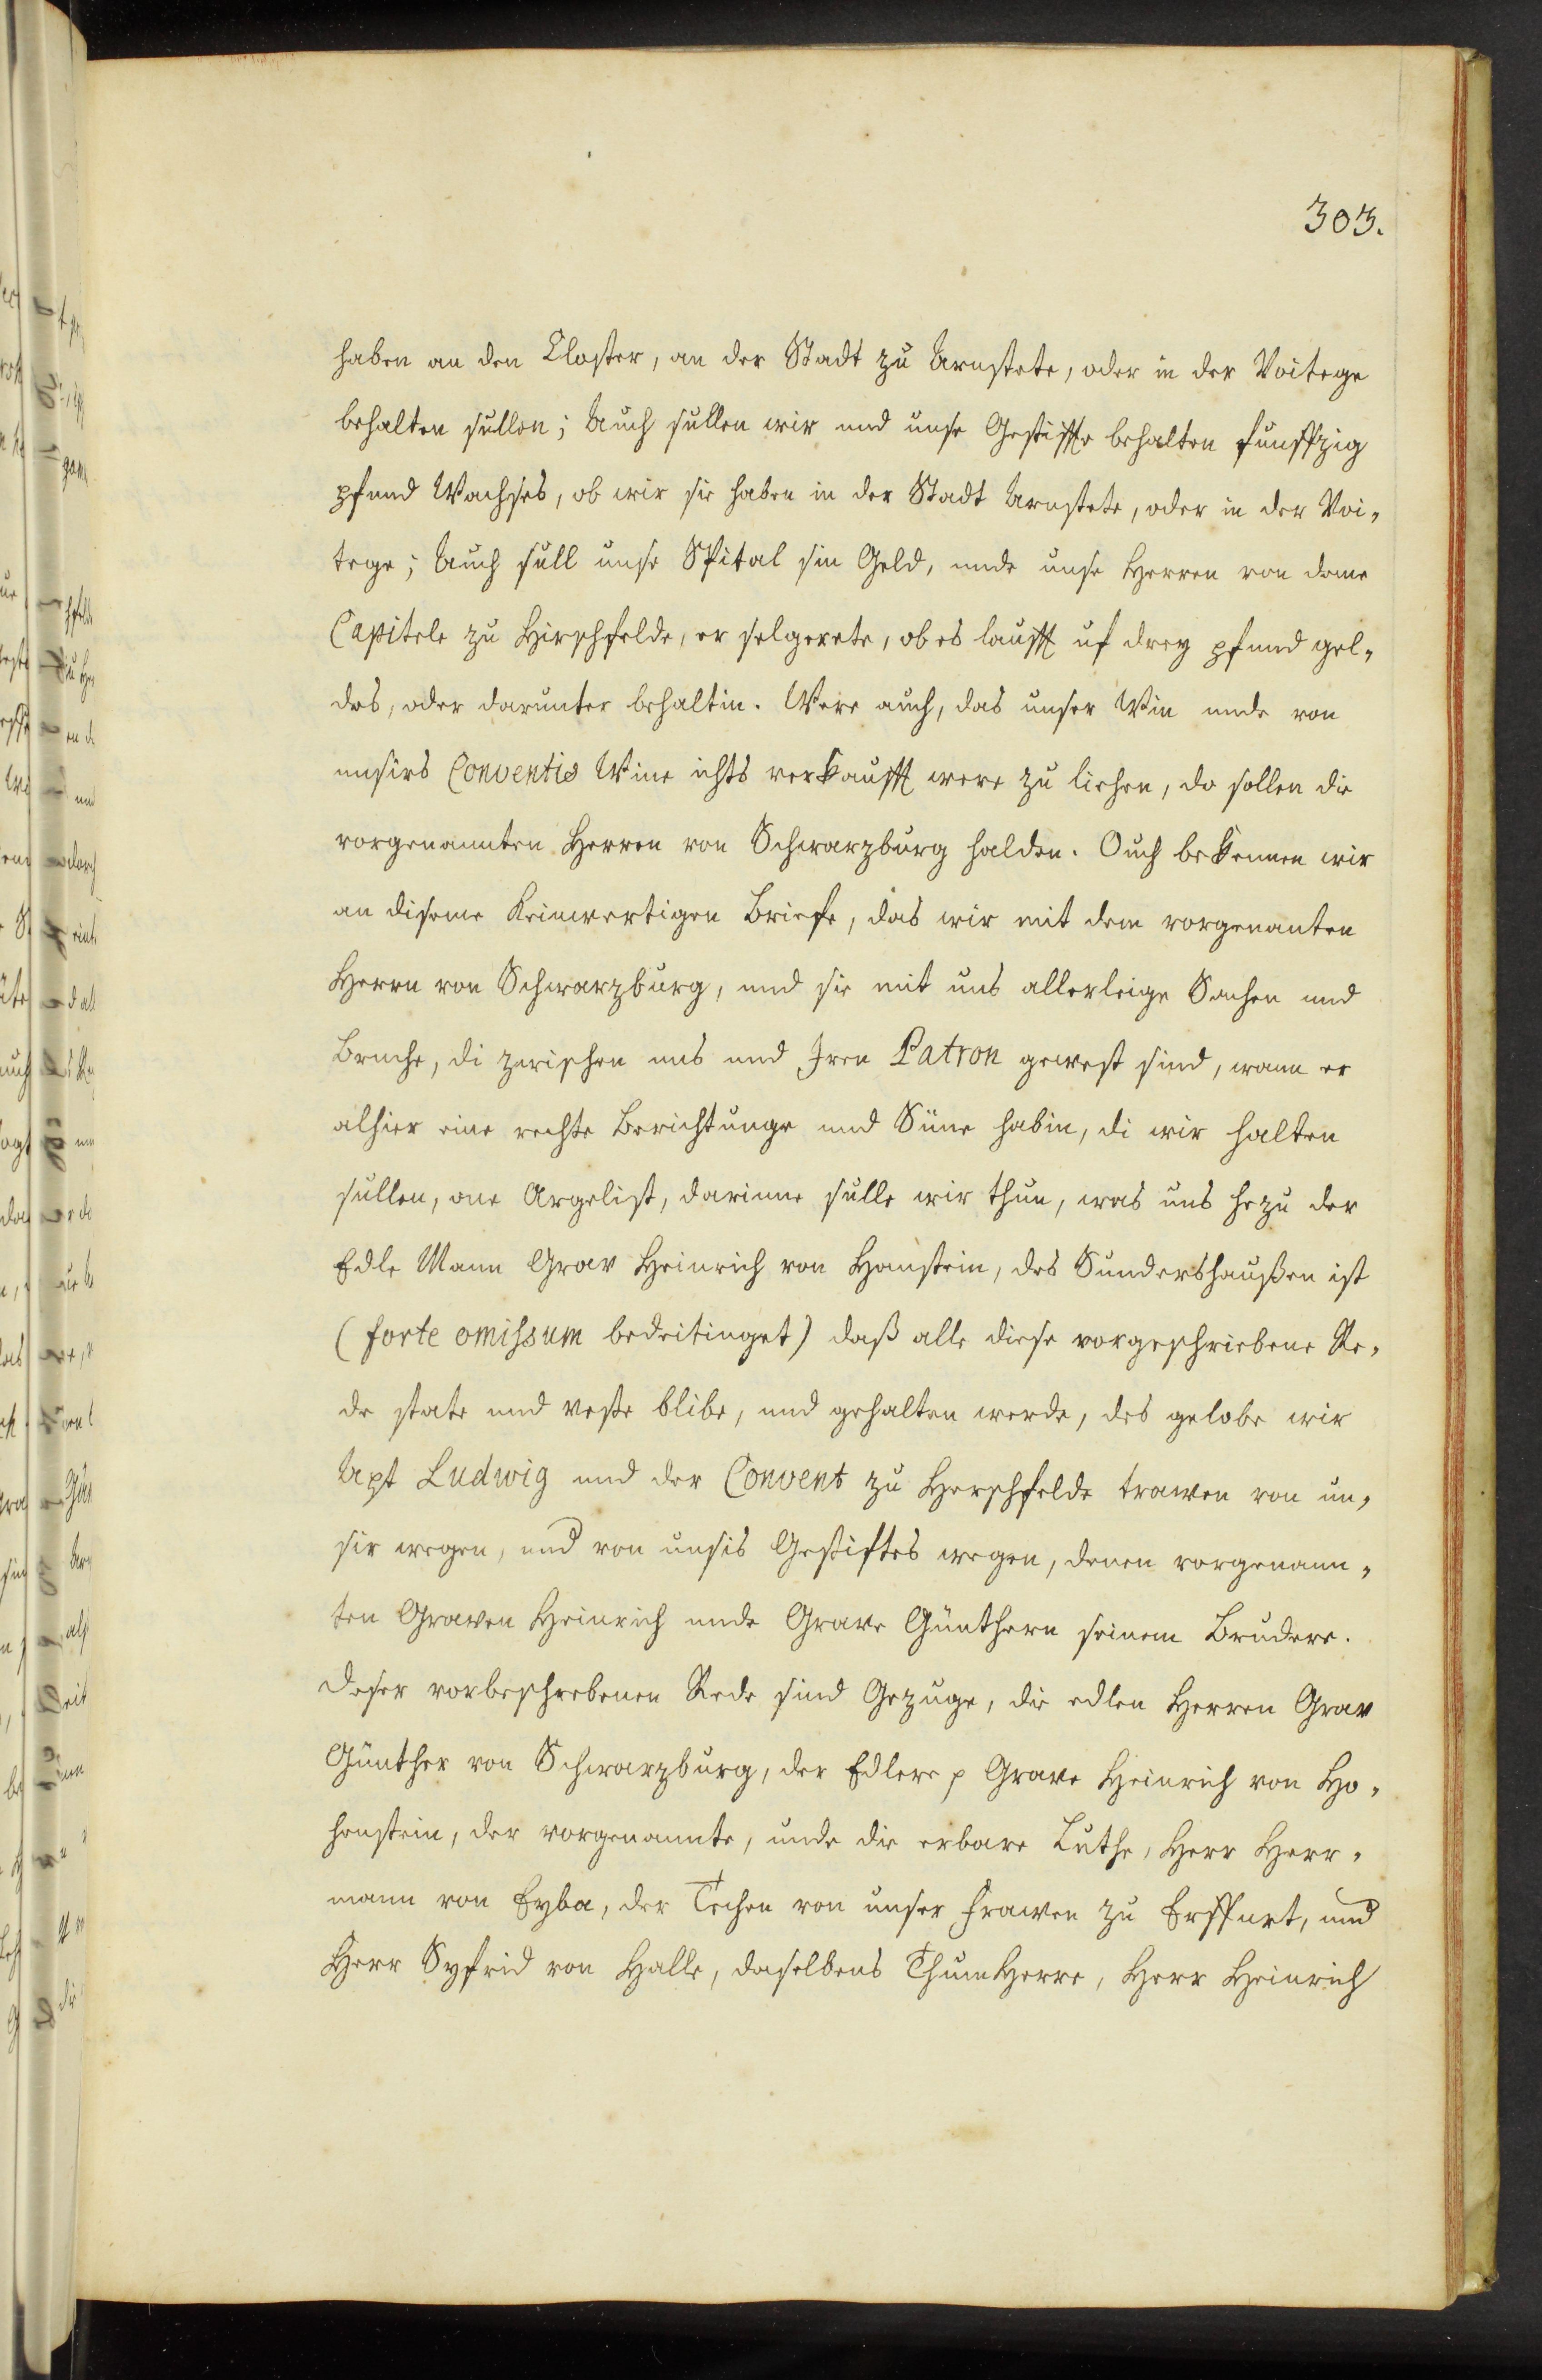 303.
haben an den Closter, an der Stadt zu Arnstete, oder in der Voitege
behalten sullen; Auch sullen wir und unse Gestiffte behalten funffzig
pfund Wachses, ob wir sie haben in der Stadt Arnstete, oder in der Voi-
tege; Auch sull unse Spital sin Geld, unde unse Herren von deme
Capitele zu Hirschfelde, er selgerete, ob es laufft uf drey pfund gel-
des, oder darunter behaltin. Were auch, das unser Win unde von
unsirs Conventis Wine ichts verkaufft were zu liehen, do sollen die
vorgenannten Herren von Schwarzburg halden. Ouch bekennen wir
an diseme keinwertigen Briefe, das wir mit dem vorgenanten
Herrn von Schwarzburg, und sie mit uns allerleige Sachen und
Bruche, di zwischen uns und Iren Patron gewest sind, wann er
alhier eine rechte Berichtunge und Süne habin, di wir halten
sullen, one Argelist, darinne sulle wir thun, was uns hezu der
Edle Mann Grav Heinrich von Honstein, des Sundershaußen ist
(forte omissum bedeitinget) daß alle diese vorgeschriebene Re-
de state und veste blibe, und gehalten werde, des gelobe wir
Apt Ludwig und der Convent zu Herschfelde trawen von un-
sir wegen, und von unsis Gestiftes wegen, denen vorgenann-
ten Graven Heinrich unde Grave Günthern seinem Brudere.
Deser vorbeschrebenen Rede sind Gezuge, die edlen Herren Grav
Günther von Schwarzburg, der Edlere p Grave Heinrich von Ho-
henstein, der vorgenannte, unde die erbare Luthe, Herr Herr-
mann von Eyba, der Techen von unser Frawen zu Erffurt, und
Herr Syfrid von Halle, daselbens Thumherre, Herr Heinrich